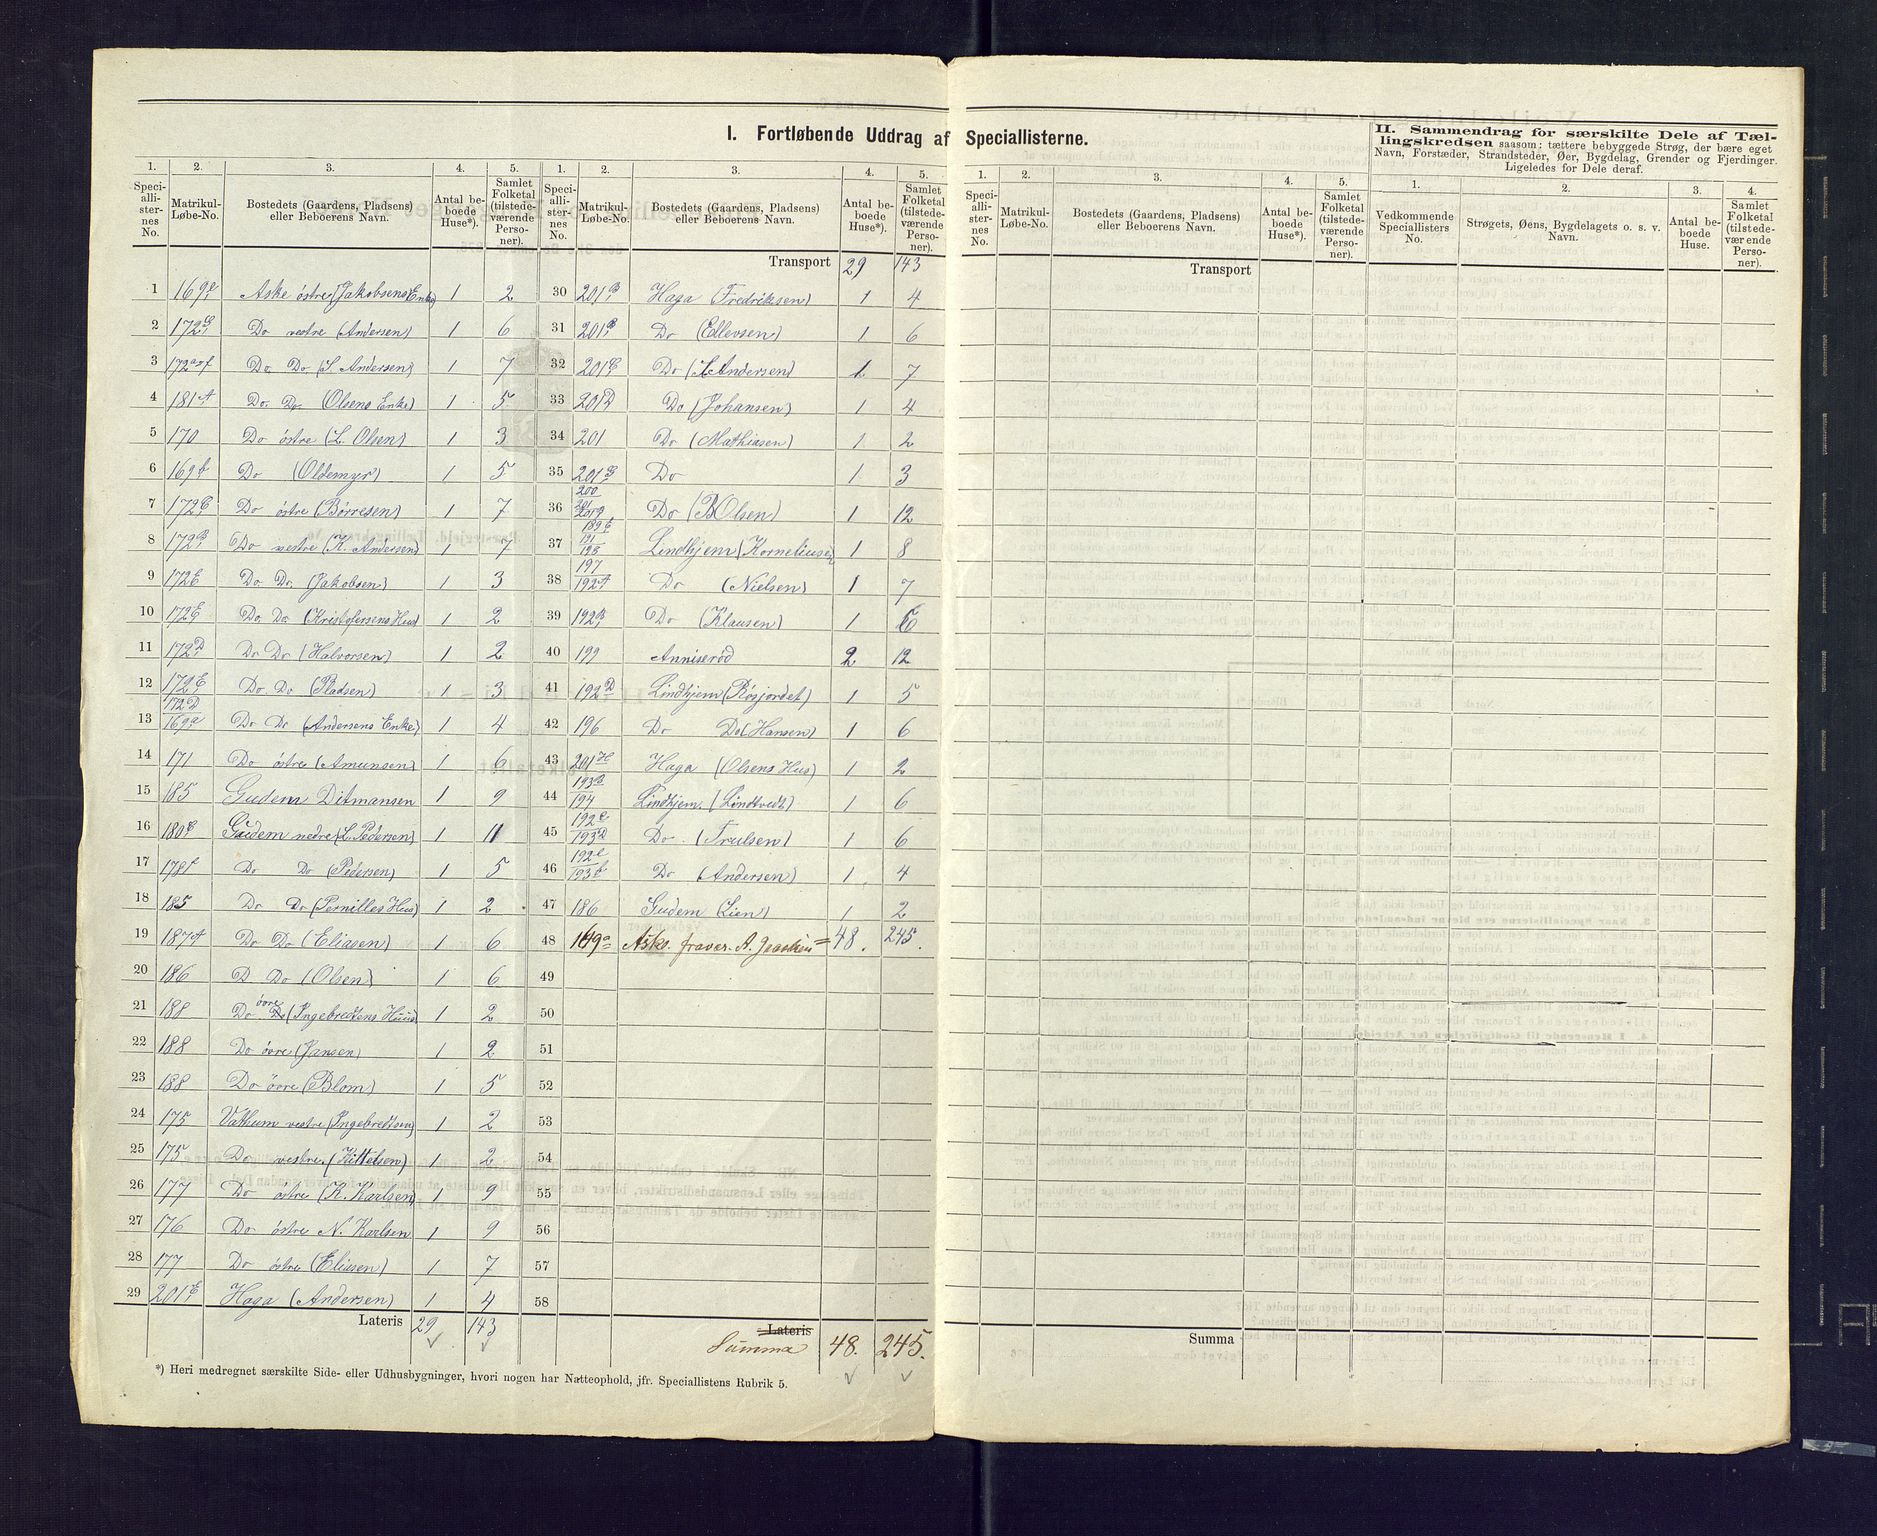 I. Fortløbende Uddrag af Speciallisterne.
II. Sammendrag for særskilte Dele af Tæl-
lingskredsen saasom: tættere bebyggede Strøg, der bære eget
Navn, Forstæder, Strandsteder, Øer, Bygdelag, Grender og Fjerdinger.
Ligeledes for Dele deraf.
1. 2. 3. 4. 5. 1. 2. 3. 4. 5. 1. 2. 3. 4. 5. 1. 2. 3. 4.
Speciallisternes No. Matrikul-Løbe-No. Bostedets (Gaardens, Pladsens) eller Beboerens Navn. Antal beboede Huse*). Samlet Folketal (tilstedeværende Personer).
Speciallisternes No. Matrikul-Løbe-No. Bostedets (Gaardens, Pladsens) eller Beboerens Navn. Antal beboede Huse*). Samlet Folketal (tilstedeværende Personer).
Speciallisternes No. Matrikul-Løbe-No. Bostedets (Gaardens, Pladsens) eller Beboerens Navn. Antal beboede Huse*). Samlet Folketal (tilstedeværende Personer).
Vedkommende Speciallisters No. Strøgets, Øens, Bygdelagets o. s. v. Navn. Antal beboede Huse. Samlet Folketal (tilstedeværende Personer).
1 169e Aske östre (Jakobsens Enke) 1 2
2 172G Do vestre (Andersen) 1 6
3 172 Do Do (S. Andersen) 1 7
4 181A Do. Do. (Olsens Enke) 1 5
5 170 Do östre (L. Olsen) 1 3
6 169b Do (Oldemyr) 1 5
7 172C Do östre (Börresen) 1 7
8 172B Do vestre (K. Andersen) 1 7
9 172E Do. Do. (Jakobsen) 1 3
10 172E Do. Do. (Kristofersens Hus) 1 2
11 172D Do Do (Halvorsen) 1 2
12 172E Do. Do (Pladsen) 1 3
172D
13 169a Do Do (Andersens Enke) 1 4
14 171 Do östre (Amunsen) 1 6
15 185 Gudem Ditmansen 1 9
16 180C Gudem nedre (L. Pedersen) 1 11
17 178f Do Do (Pedersen) 1 5
18 185 Do Do (Pernilles Hus) 1 2
19 187A Do Do (Eliasen) 1 6
20 186 D Do (Olsen) 1 6
21 188 Do övre Do (Ingebredtens Huus) 1 2
22 188 Do övre (Jansen) 1 2
23 188 Do övre (Blom) 1 5
24 175 Valhum vestre (Ingebredtsen) 1 2
25 175 Do vestre (Kittelsen) 1 2
26 177 Do östre (K. Karlsen) 1 9
27 176 Do östre N. Karlsen 1 9
28 177 Do östre (Eliasen) 1 7
29 201E Haga (Andersen) 1 4
Lateris 29 143
Transport 29 143
30 201B Haga (Fredriksen) 1 4
31 201B Do (Ellevsen) 1 6
32 201C Do (Andersen) 1 7
33 201D Do (Johansen) 1 4
34 201 Do (Mathiasen) 1 2
35 201G Do 1 3
200
36 Do (B Olsen) 1 12
189C
191
37 198 Lindhjem (Korneliusen) 1 8
197
38 192A Do (Nielsen) 1 7
39 192B Do (Klausen) 1 6
40 199 Anniseröd 2 12
41 192D Lindhjem (Rösjordet) 1 5
42 196 Do Do (Hansen) 1 6
43 201H Haga (Olsens Hus) 1 2
193B
44 194 Lindhjem (Lindtvedt) 1 6
192c
45 193D Do. (Trulsen) 1 6
192c
46 193b Do (Andersen) 1 4
47 186 Gudem (Lien) 1 2
48 169a Aske. fravær. A. = 48. 245.
49
50
51
52
53
54
55
56
57
58
Lateris
Summa 48. 245.
Transport
Summa
*) Heri medregnet særskilte Side- eller Udhusbygninger, hvori nogen har Natteophold, jfr. Speciallistens Rubrik 5.